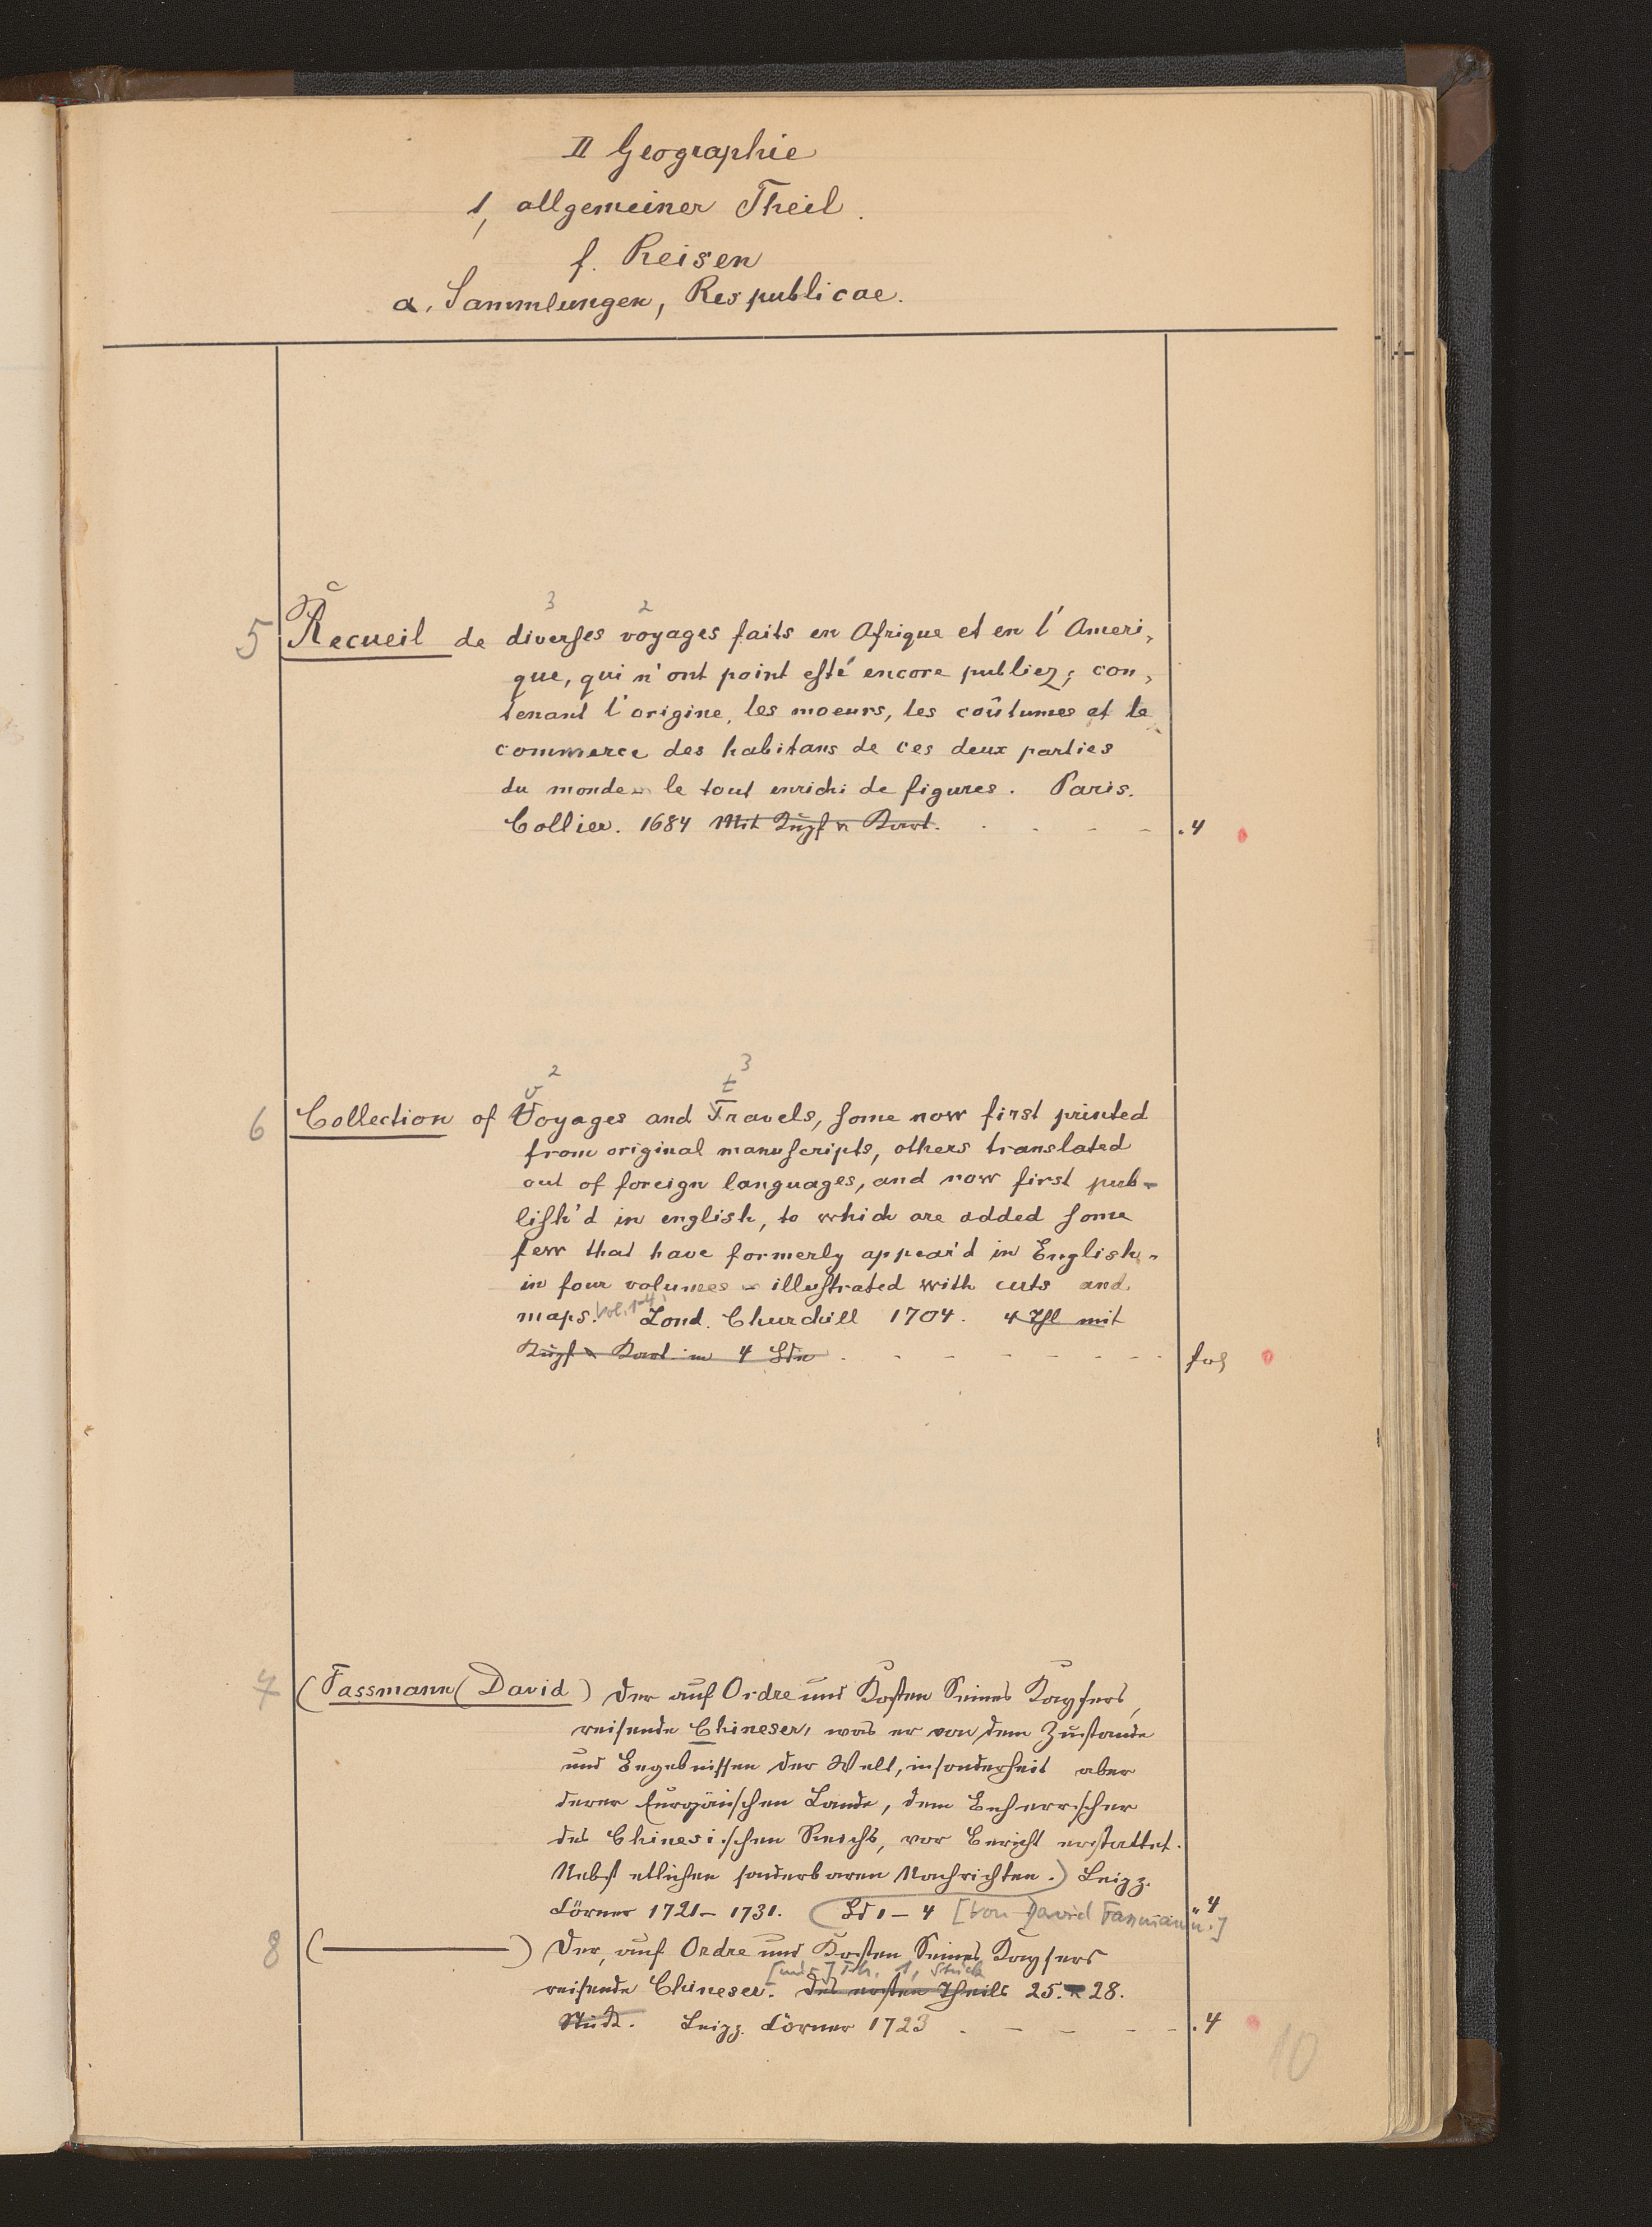 II Geographie
1, allgemeiner Theil.
f. Reisen
a. Sammlungen, Respublicae.
3 2
5 Recueil de diverses voyages faits en Afrique et en l'Ameri,
que, qui n'ont point esté encore publiez; con,
tenant l'origine, les moeurs, les coûtumes et le
commerce des habitans de ces deux parties
du monde = le tout enrichi de figures. Paris.
Collier. 1684 Mit Kupf u Kart. . . - - - . 4
v 2 t 3
6 Collection of Voyages and Travels, some now first printed
from original manuscripts, others translated
out of foreign languages, and now first pub-
lish'd in english, to which are added some
few that have formerly appear'd in English =
in four volumes = illustrated with cuts and
maps. Vol. 1-4 Lond. Churchill 1704. 4 Thl mit
Kupf u Kart in 4 Bdn . - - - - - - - fol
7 (Fassmann (David) Der auf Ordre und Kosten Seines Kaysers,
reisende Chineser, was er von dem Zustande
und Begebnissen der Welt, insonderheit aber
derer Europäischen Lande, dem Beherrscher
des Chinesischen Reichs, vor Bericht erstattet.
Nebst etlichen sonderbaren Nachrichten.) Leipz.
Cörner 1721-1731. Bd 1-4 [von David Fassmann.] 4
8 (———) Der, auf Ordre und Kosten Seines Kaysers
Th. 1, Stück
reisende Chineser. des ersten Theils 25. - 28.
Stück. Leipz. Cörner 1723 . - - - - . 4
10